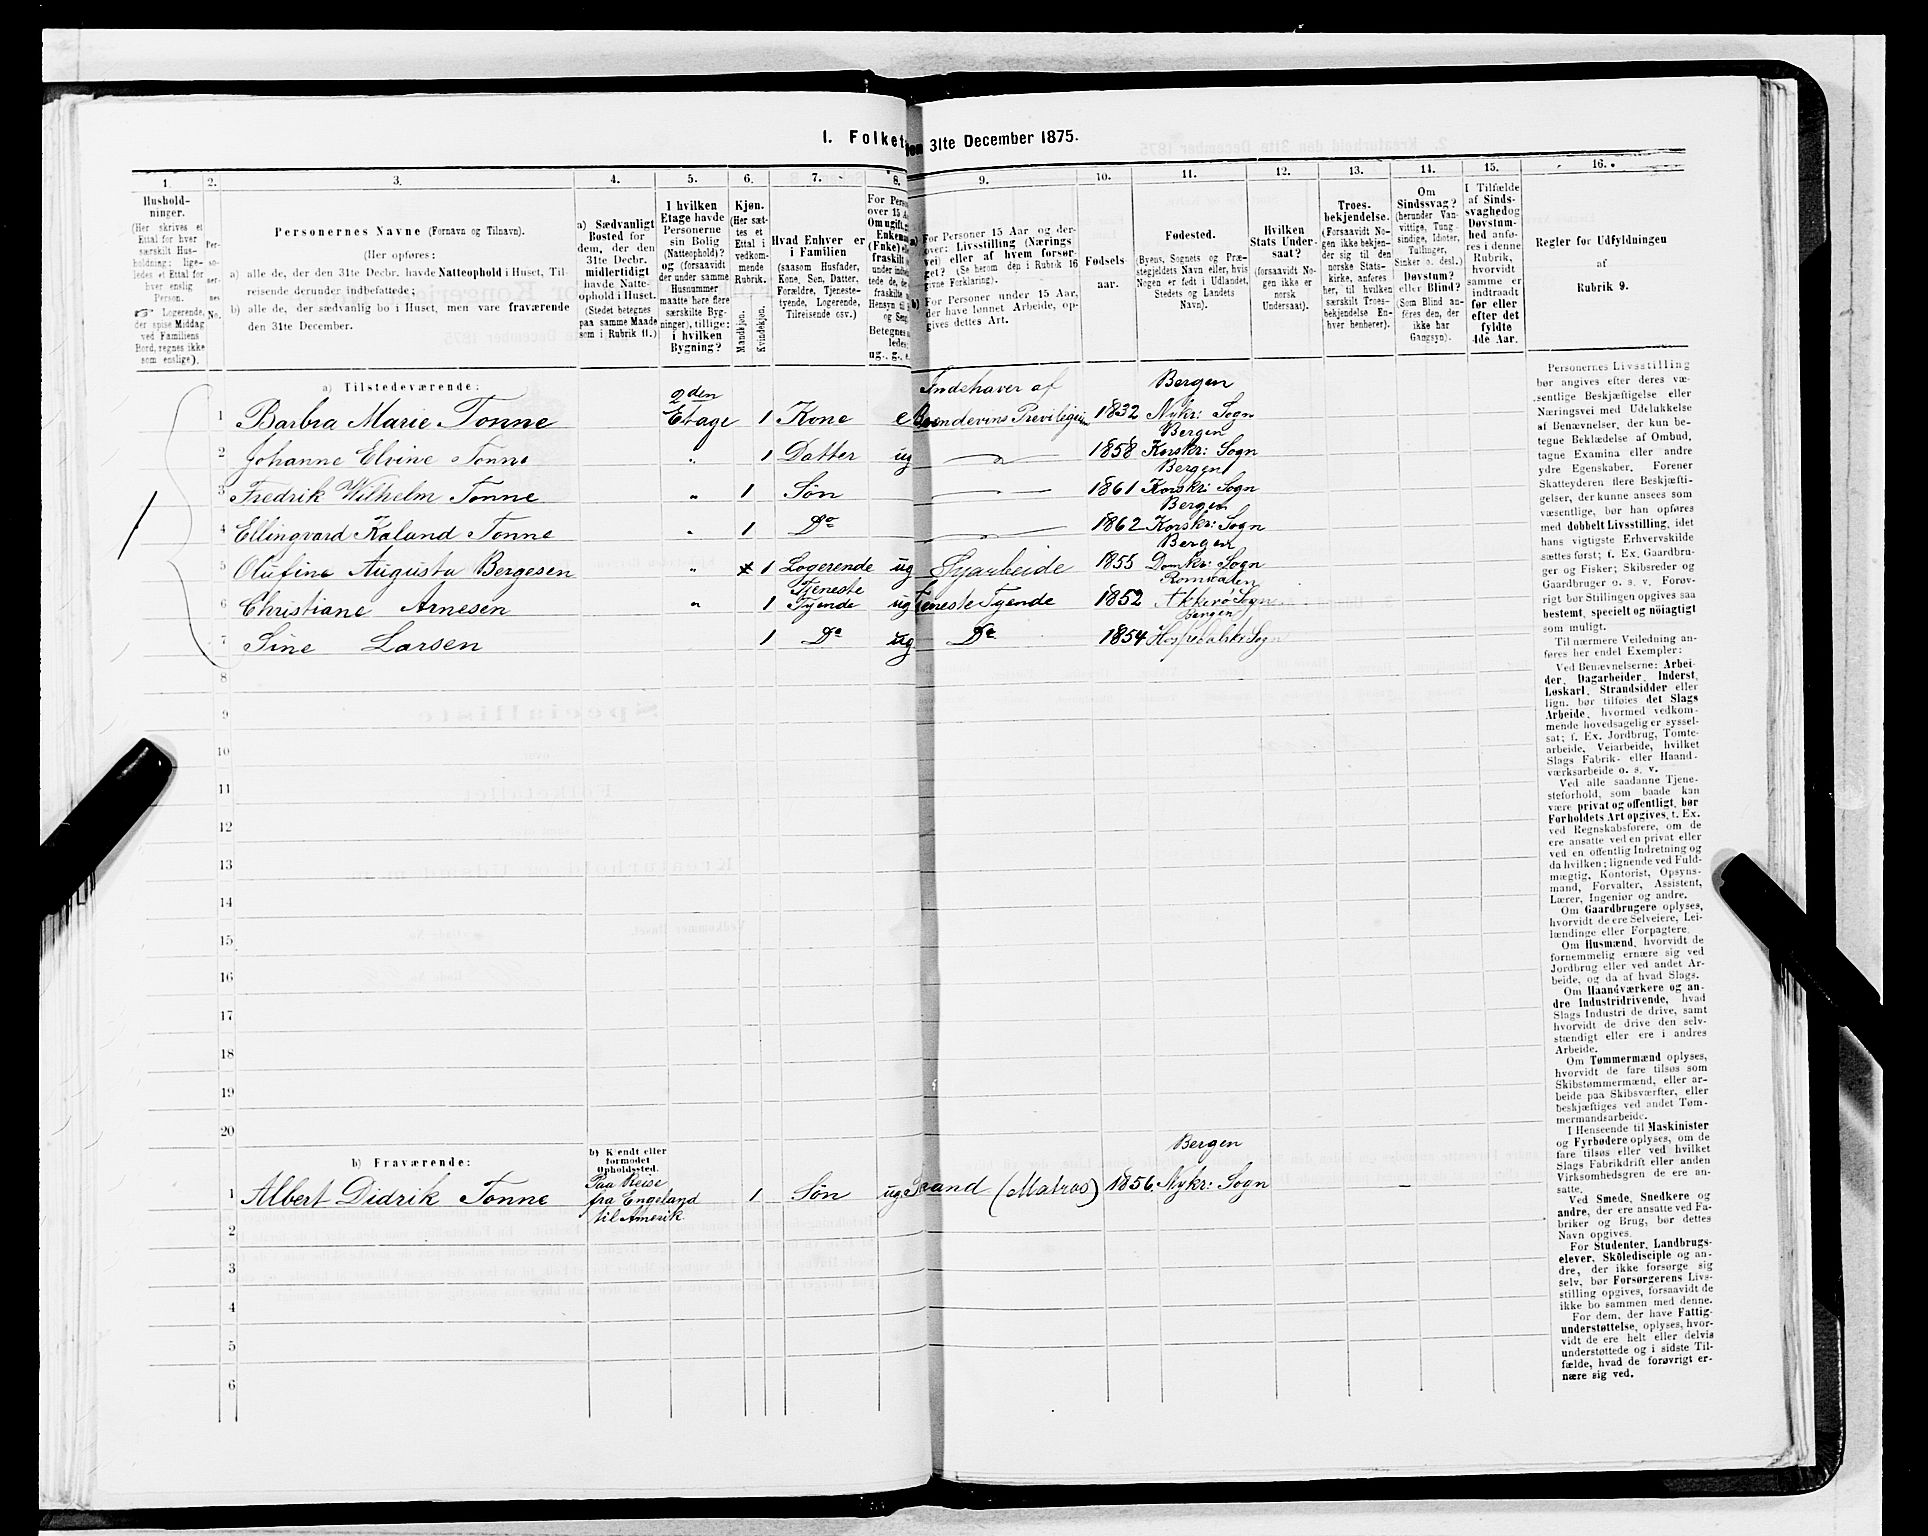 1. Folket
om 31te December 1875.
1.
2.
3.
4.
5.
6.
7.
8.
9.
10.
11.
12.
13.
14.
15.
16.
Hushold-
ninger.
(Her skrives et
Ettal for hver
særskilt Hus-
holdning; lige-
ledes et Ettal for
hver enslig
Person.
☞ Logerende,
der spise Middag
ved Familiens
Bord, regnes ikke
som enslige).
Per-
so-
ner-
nes
No.
Personernes Navne (Fornavn og Tilnavn).
(Her opføres:
a) alle de, der den 31te Decbr. havde Natteophold i Huset, Til-
reisende derunder indbefattede;
b) alle de, der sædvanlig bo i Huset, men vare fraværende
den 31te December.
a) Sædvanligt
Bosted for
dem, der den
31te Decbr.
midlertidigt
havde Natte-
ophold i Huset.
(Stedet betegnes
paa samme Maade
som i Rubrik 11.)
I hvilken
Etage havde
Personerne
sin Bolig
(Natteophold)?
og (forsaavidt
der under samme
Husnummer
maatte høre flere
særskilte Byg-
ninger), tillige:
i hvilken
Bygning?
Kjøn.
(Her sæt-
tes et
Ettal i
vedkom-
mende
Rubrik.
Mandkjøn.
Kvindekjøn.
Hvad Enhver er
i Familien
(saasom Husfader,
Kone, Søn, Datter,
Forældre, Tjeneste-
tyende, Logerende,
Tilreisende osv.)
For Perso
over 15 A
Om ugift, g
Enkema
(Enke) el
fraskilt
under indbe
tede de, d
fraskilte
Hensyn til
og Sen
Betegnes
ledes:
ug., g., e.
a)
b)
For Personer 15 Aar og der-
over: Livsstilling (Nærings
vei) eller af hvem forsør-
get? (Se herom den i Rubrik 16
givne Forklaring).
For Personer under 15 Aar,
der have lønnet Arbeide, op-
gives dettes Art.
Fødsels
aar.
Fødested.
(Byens, Sognets og Præ-
stegjeldets Navn eller, hvis
Nogen er født i Udlandet,
Stedets og Landets
Navn).
Hvilken
Stats Under-
saat?
(forsaavidt No-
gen ikke er
norsk
Undersaat).
Troes-
bekjendelse.
(Forsaavidt No-
gen ikke bekjen-
der sig til den
norske Stats-
kirke, anføres
her, til hvilken
særskilt Troes-
bekjendelse En-
hver henhører).
Om
Sindssvag?
(herunder Van-
vittige, Tung-
sindige, Idioter,
Tullinger,
Sinker o. desl.)
Døvstum?
eller Blind?
(Som Blind an-
føres den, der
ikke har
Gangsyn).
I Tilfælde
af Sinds-
svaghed og
Døvstum-
hed anfø-
res i denne
Rubrik,
hvorvidt
samme er
indtraadt
før eller
efter det
fyldte
4de Aar.
Regler for Udfyldningen
af
Rubrik 9.
a) Tilstedeværende:
2den Indehaver af Bergen
1 Barbra Marie Tonne Etage 1 Kone e Brendevins Previligium 1832 Nykr: Sogn
Bergen
2 Johanne Elvine Tonne " 1 Datter ug 1858 Korskr: Sogn
Bergen
3 Fredrik Wilhelm Tonne " 1 Søn 1861 Korskr: Sogn
Bergen
4 Ellingvard Kaland Tonne " 1 Do 1862 Korskr: Sogn
Bergen
5 Olufine Augusta Bergesen " 1 Logerende ug Syarbeide 1855 Domkr: Sogn
Tjeneste Romsdalen
6 Christiane Arnesen " 1 Tyende ug Tjeneste Tyende 1852 Akkerø Sogn
Bergen
7 Sine Larsen 1 Do ug Do 1854 Hospitalskr Sogn
8
9
10
11
12
13
14
15
16
17
18
19
20
b) Fraværende:
b) Kjendt eller
formodet
Opholdssted.
Paa Reise Bergen
1 Albert Didrik Tonne fra Engeland 1 Søn ug Sømand (Matros) 1856 Nykr: Sogn
til Amerik
2
3
4
5
6
Personernes Livsstilling
bør angives efter deres væ-
sentlige Beskjæftigelse eller
Næringsvei med Udelukkelse
af Benævnelser, der kun be-
tegne Beklædelse af Ombud,
tagne Examina eller andre
ydre Egenskaber. Forener
Skatteyderen flere Beskjæfti-
gelser, der kunne ansees som
væsentlige, bør han opføres
med dobbelt Livsstilling, idet
hans vigtigste Erhvervskilde
sættes først; f. Ex. Gaardbru-
ger og Fisker; Skibsreder og
Gaardbruger o. s. v. Forøv-
rigt bør Stillingen opgives saa
bestemt, specielt og nøiagtigt
som muligt.
Til nærmere Veiledning an-
føres her endel Exempler:
Ved Benævnelserne: Arbei-
der, Dagarbeider, Inderst,
Løskarl, Strandsidder eller
lign. bør tilføies det Slags
Arbeide, hvormed vedkom-
mende hovedsagelig er syssel-
sat; f. Ex. Jordbrug, Tomte-
arbeide, Veiarbeide, hvilket
Slags Fabrik- eller Haand-
værksarbeide o. s. v.
Ved alle saadanne Tjene-
steforhold, som baade kan
være privat og offentligt, bør
Forholdets Art opgives, f. Ex.
ved Regnskabsførere, om de
ere ansatte ved en privat eller
ved en offentlig Indretning og
da hvilken; lignende ved Fuld-
mægtig, Kontorist, Opsyns-
mand, Forvalter, Assistent,
Lærer, Ingeniør og andre.
Om Gaardbrugere oplyses,
hvorvidt de ere Selveiere, Lei-
lændinge eller Forpagtere.
Om Husmænd, hvorvidt de
fornemmelig ernære sig ved
Jordbrug eller ved andet Ar-
beide, og da af hvad Slags.
Om Haandværkere og an-
dre Industridrivende, hvad
Slags Industri de drive, samt
hvorvidt de drive den selv-
stændigt eller ere i andres
Arbeide.
Om Tømmermænd oplyses,
hvorvidt de fare tilsøs som
Skibstømmermænd, eller ar-
beide paa Skibsværfter, eller
beskjæftiges ved andet Tøm-
mermandsarbeide.
I Henseende til Maskinister
og Fyrbødere oplyses, om de
fare tilsøs eller ved hvilket
Slags Fabrikdrift eller anden
Virksomhedsgren de ere an-
satte.
Ved Smede, Snedkere og
andre, der ere ansatte ved Fa-
briker og Brug, bør dettes
Navn opgives.
For Studenter, Landbrugs-
elever, Skoledisciple og an-
dre, der ikke forsørge sig
selv, bør Forsørgerens Livs-
stilling opgives, forsaavidt de
ikke bo sammen med denne.
For dem, der have Fattig-
understøttelse, oplyses, hvor-
vidt de ere helt eller delvis
understøttede og i sidste Til-
fælde, hvad de forøvrigt er-
nære sig ved.